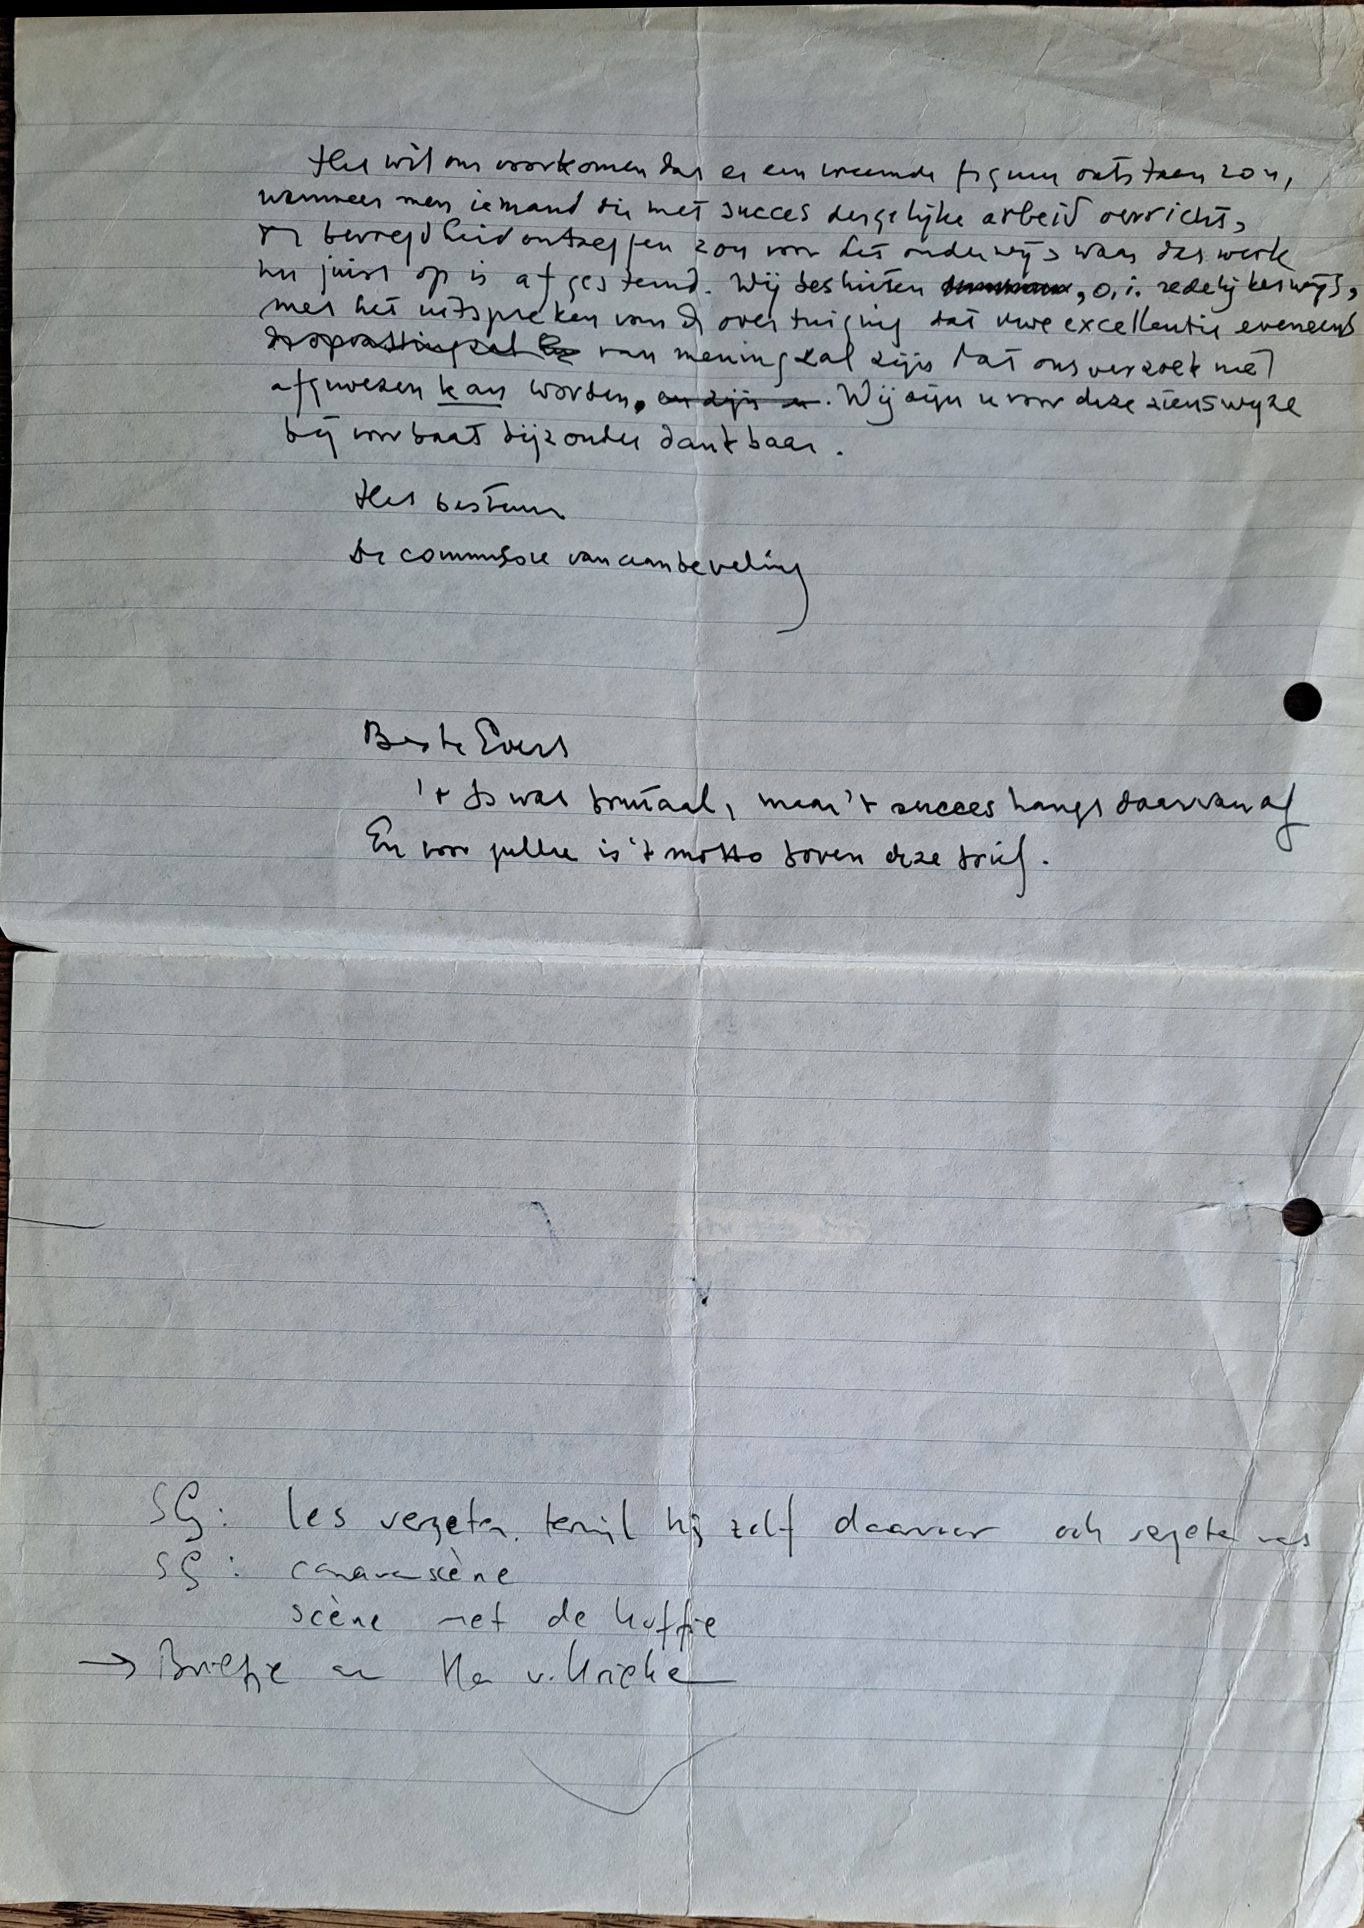 Het wil ons voorkomen dat er een vreemde figuur ontstaan zou,
wanneer men iemand die met succes dergelijke arbeid verricht,
de bevoegdheid ontzeggen zou voor het onderwijs waar das werk
nu juist op is afgestemd. Wij besluiten , o.i. redelijkerwijs,
met het uitspreken van de overtuiging dat uwe excellentie eveneens
van mening zal zijn dat ons verzoek niet
afgewezen kan worden. en zijn u. Wij zijn u voor deze zienswijze
bij voorbaat bijzonder dankbaar.
Het bestuur
De commissie van aanbeveling
Beste Evers
't Is wat brutaal, maar 't succes hangt daarvan af
En voor jullie is 't motto boven deze brief.
SG: les vergeten. terwijl hij zelf daarvoor ook vergeten was
SG: scène
scène met de koffie
→ Briefje aan v.